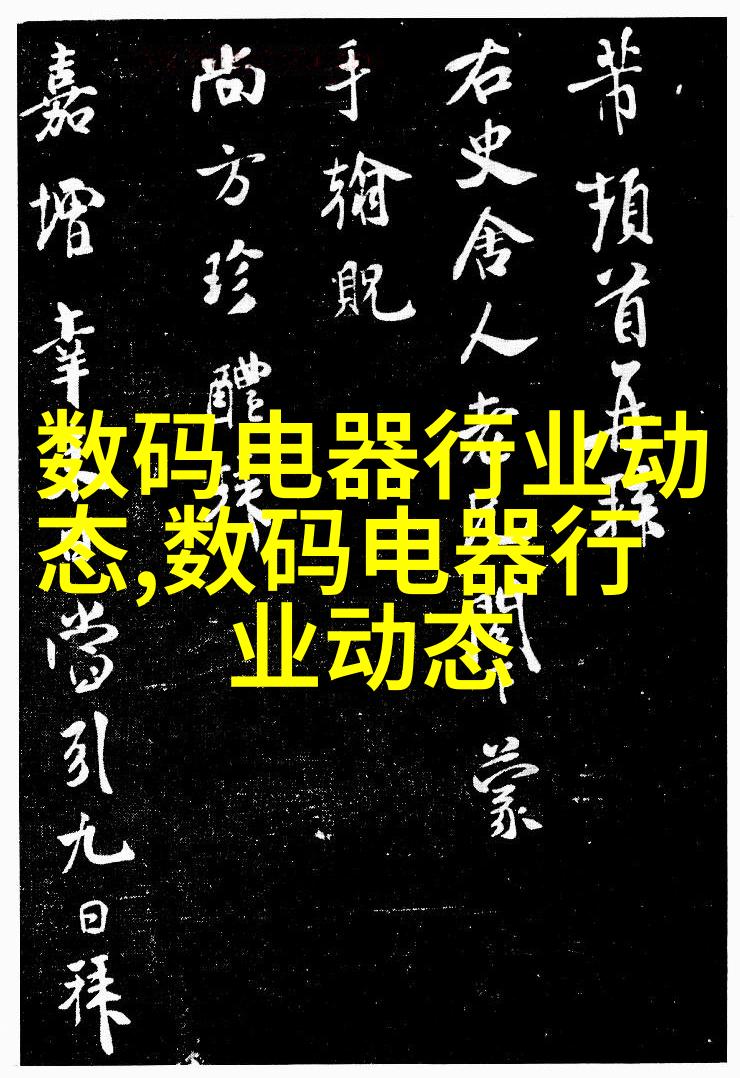 芾頓首再拜
右史舍人老兄閣下蒙
手翰貺
尚方珍醴珠
嘉增幸
當引九日拜
数码电器行业动
态,数码电器行
业动态